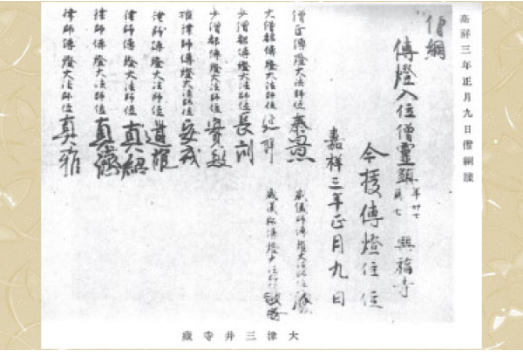 嘉祥三年正月九日僧綱牒
僧綱
傳燈入位僧靈 年廿七 興福寺
今授傳燈住位
嘉祥三年正月九日
威儀師傳燈大法師位
威儀師傳燈
僧正傳燈大法師位泰景
大僧都傳燈大法師位
少僧都傳燈大法師位長訓
少僧都傳燈大法師位實敏
權律師傳燈大法師位安戒
律師傳燈大法師位道雄
律師傳燈大法師位真紹
律師傳燈大法師位真濟
律師傳燈大法師位真雅
大津三井寺蔵